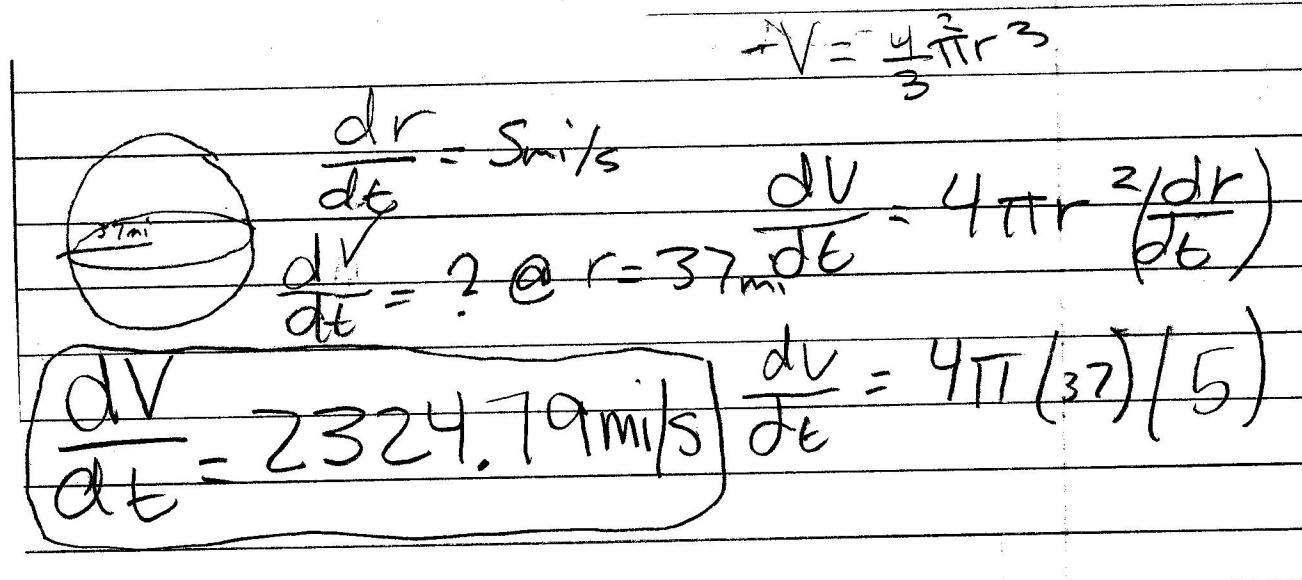 V = 4/3 πr³
dr/dt = 5mi/s
37mi
dV/dt = ? @ r = 37mi
dV/dt = 4πr²(dr/dt)
dv/dt = 4π(37)(5)
dV/dt = 2324.79mi/s